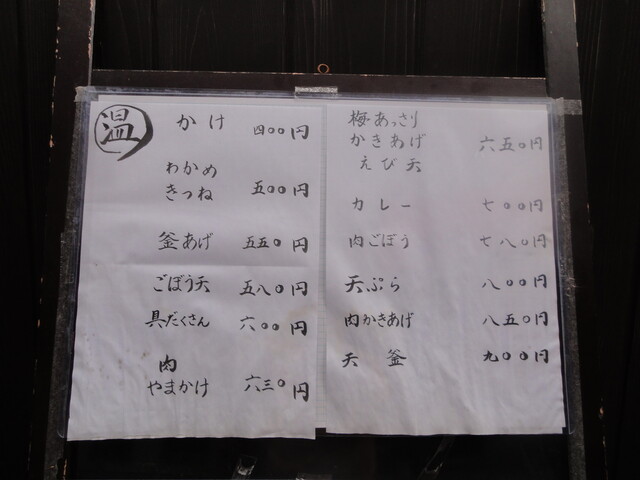 温
かけ 四〇〇円
わかめ
きつね 五〇〇円
釜あげ 五五〇円
ごぼう天 五八〇円
具だくさん 六〇〇円
肉
やまかけ 六三〇円
梅あっさり
かきあげ 六五〇円
えび天
カレー 七〇〇円
肉ごぼう 七八〇円
天ぷら 八〇〇円
肉かきあげ 八五〇円
天釜 九〇〇円